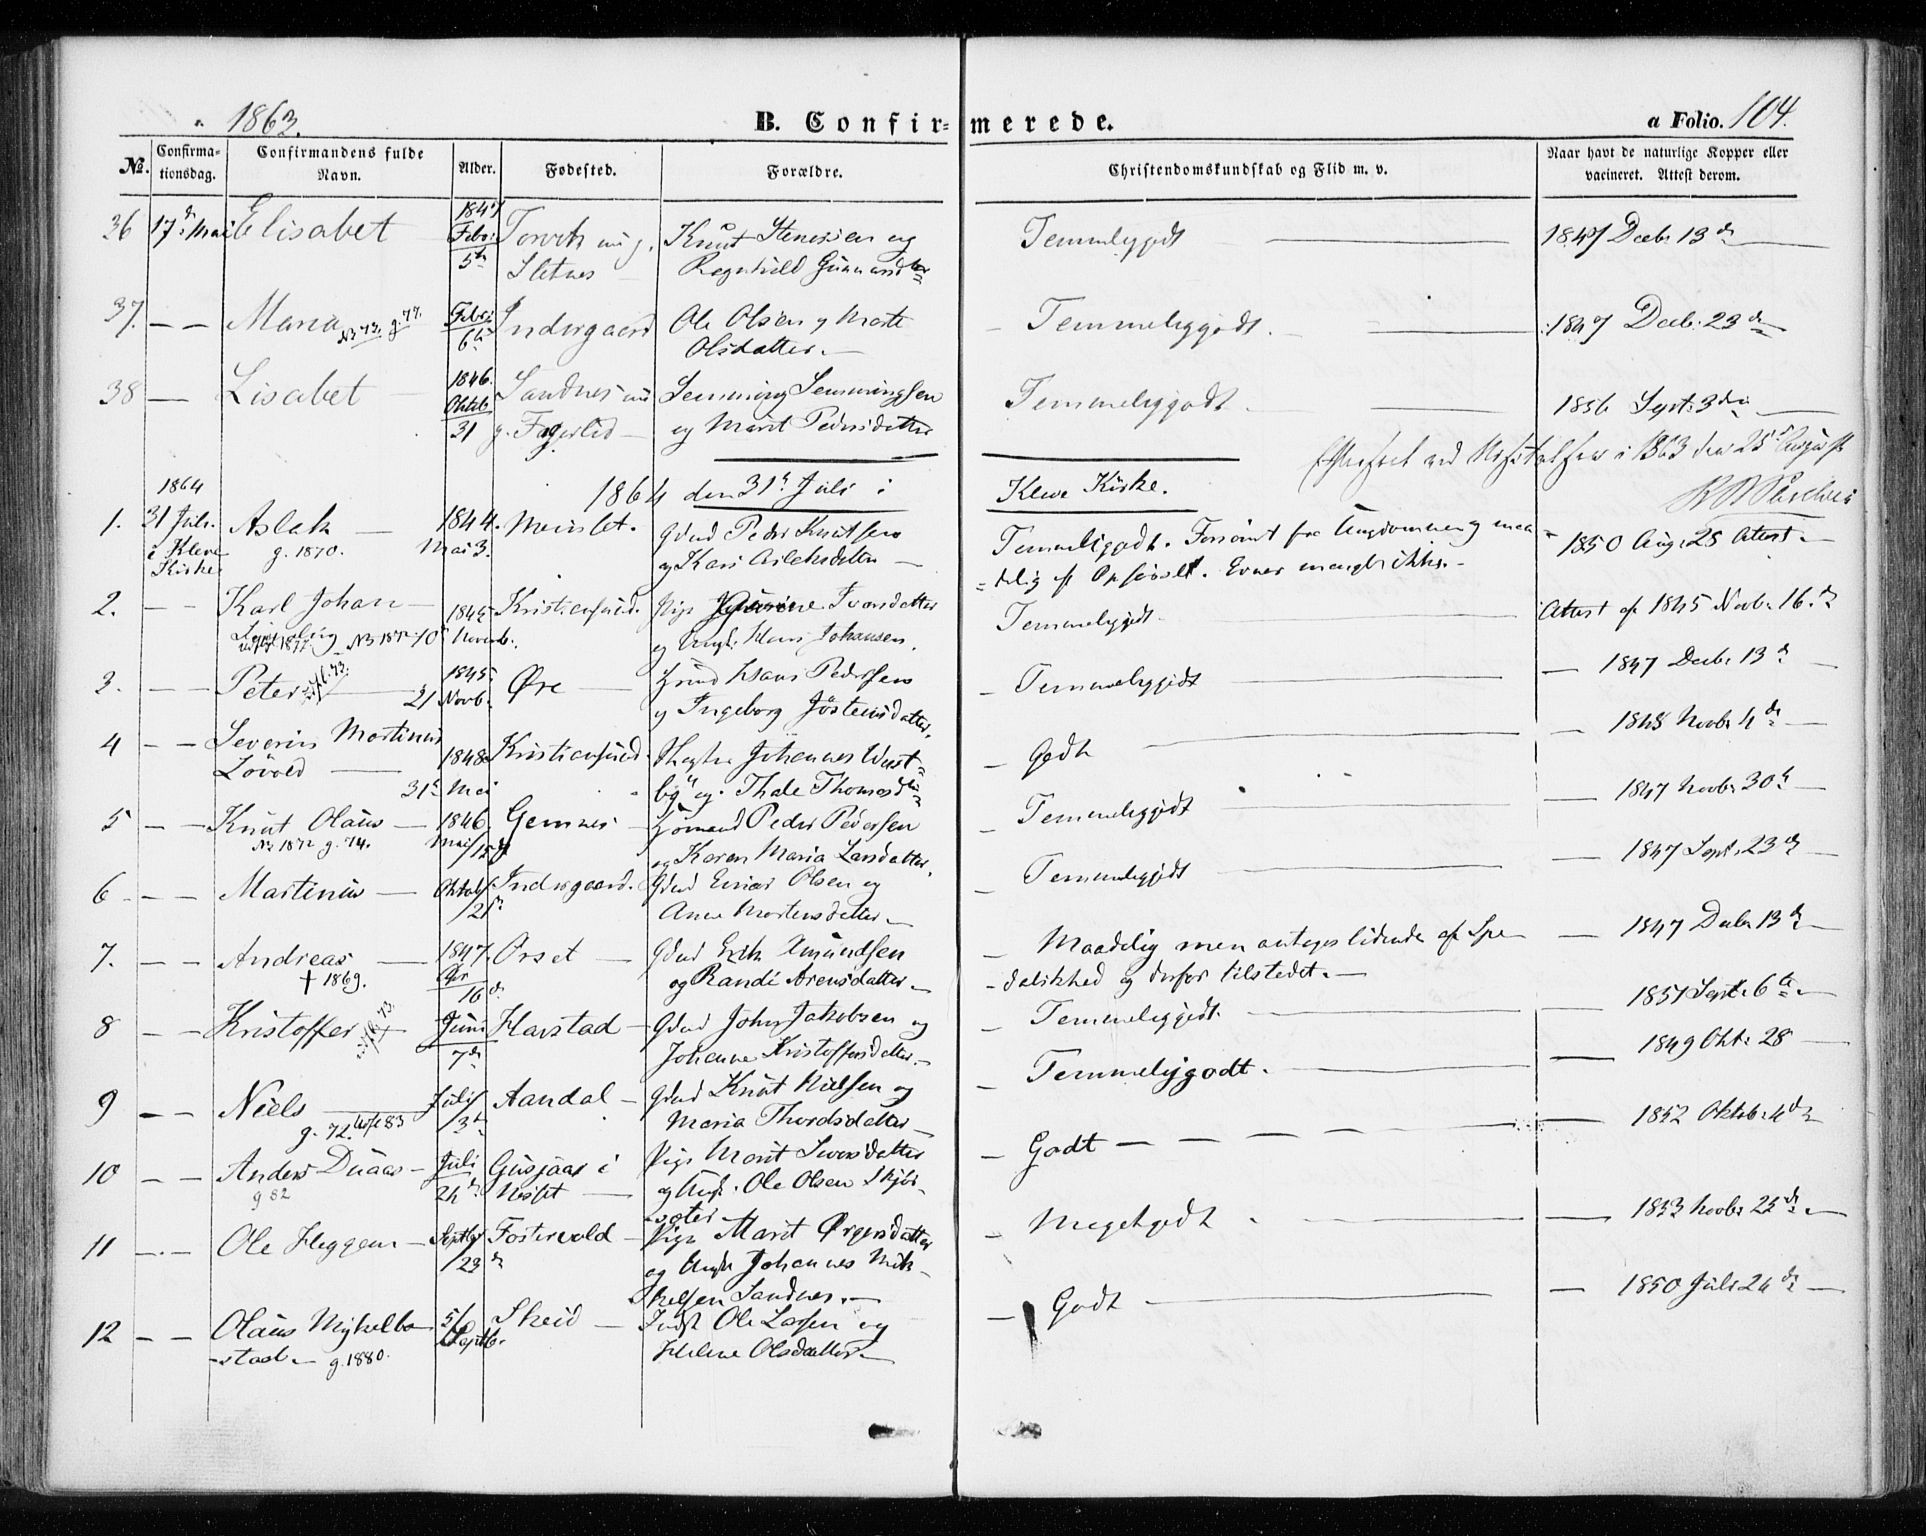 1863.
B. Confirmerede.
a Folio. 104.
No. Confirmationsdag. Confirmandens fulde Navn. Alder. Fødested. Forældre. Christendomskundskab og Flid m. v. Naar havt de naturlige Kopper eller vacineret. Attest derom.
36 17de Mai Elisabet 1847 Febr: 5te Torvik nu g. Sletnes Knut Stenersen og Regnhild Gunnarsdtr Temmeliggodt 1847 Decbr 13de
37. Maria N3 73. g. 77. Febr: 6te Indergaard Ole Olsen og Marte Olsdatter. Temmeliggodt. 1847 Decbr: 23de
38 Lisabet 1846. Oktob 31 Sandnes nu g. Fagerlid Lemming Lemmingsen og Marit Pedersdatter Temmeliggodt 1856 Sept: 3die
i 1863 den 25de August
1864 den 31te Juli i Kleve Kirke.
1. 1864 31 Juli. i Kleve Kirke Aslak g. 1870. 1844. Mai 3. Meirslet. Gbrd Peder Knutsen og Kari Aslaksdatter Temmeligodt. Forsømt fra Ungdommen og maadelig Evner mangler ikke. 1850 Aug. 25 Attest
2. Karl Johan N3 1872 1845 10 Novemb. Kristiansund. Pige Iversdatter og Ungk. Hans Johansen. Temmeliggodt Attest af 1845 Novbr 16de
3. Peter 1845. 21 Novb. Øre Hans Pedersen og Ingeborg Jøsteinsdatter. Temmeliggodt 1847 Decbr 13de
4 Severin Martinus Løvold 1848 31te Mai Kristiansund. Johannes og Thale Thomasdtr Godt 1848 Novbr 4de
5 Knut Olaus N3 1872 g. 74. 1846 Mai/15de Gemnes Peder Pedersen og Karen Maria Larsdatter. Temmeliggodt 1847 Novbr 30te
6 Martinus Oktob/21de Indergaard. Gbrd Einar Olsen og Ane Mortensdatter. Temmeliggodt 1847 Sept. 23de
7. Andreas † 1869. 1847. Apr 16de Orset Gbrd Erik Amundsen og Randi Arensdatter. Maadelig men antages lidende af Spedalskhed og derfor tilstedet. 1847 Decbr 13de
8 Kristoffer Juni 7de Harstad Gbrd John Jakobsen og Johanne Kristoffersdatter. Temmeliggodt. 1851 Sept. 6te
9 Niels g. 72. 83 Juli/3de Aandal Gbrd Knut Nielsen og Maria Thordsdatter Temmeliggodt. 1849 Okt. 28
10 Anders Duaas g 82 Juli 24de Gusjaas i Nesset Pige Marit Iversdatter og Ungk. Ole Olsen Skjørsæter Godt 1852 Oktob. 4de
11 Ole Heggem Septbr/23de Fostervold Pige Marit Ørgersdatter og Ungk Johannes Mikkelsen Sandnes. Megetgodt 1853 Novbr 25de
12 Olaus Mykelbostad. g. 1880. 5/ Septb. Skeid Indst Ole Larsen og Helene Olsdatter. Godt 1850 Juli 24de